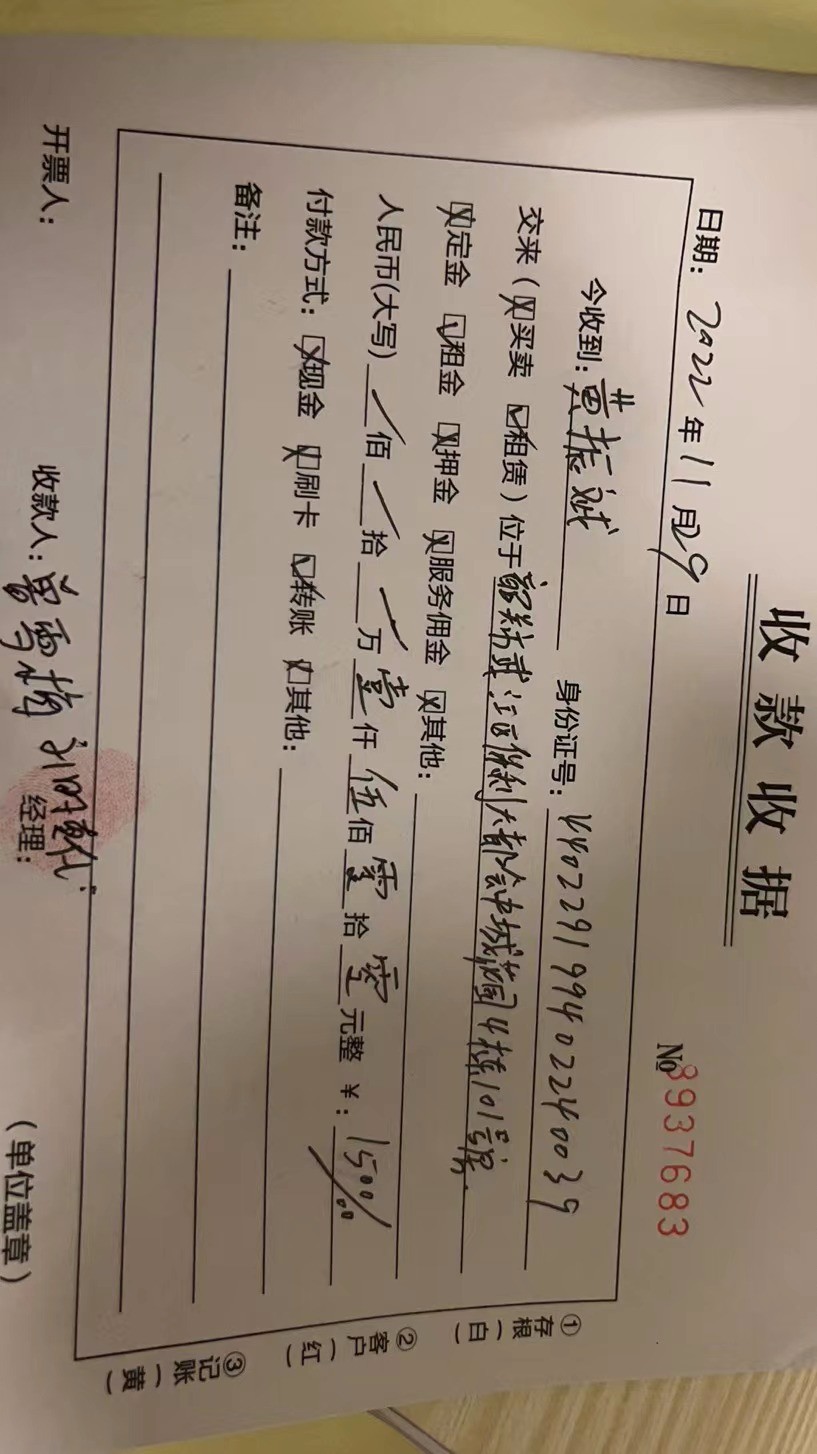 收款收据
No 8937683
日期：2022年11月29日
今收到：黄振斌 身份证号：440229199402240039
交来（☒买卖 ☑租赁）位于韶关市武江区保利大都会中城花园4栋101号房.
☒定金 ☑租金 ☒押金 ☒服务佣金 ☒其他：
人民币(大写) 佰 拾 万壹仟伍佰零拾零元整 ¥：1500/00
付款方式：☒现金 ☒刷卡 ☑转账 ☒其他：
备注：
开票人： 收款人：曾雪梅 经理： （单位盖章）
①存根（白）
②客户（红）
③记账（黄）